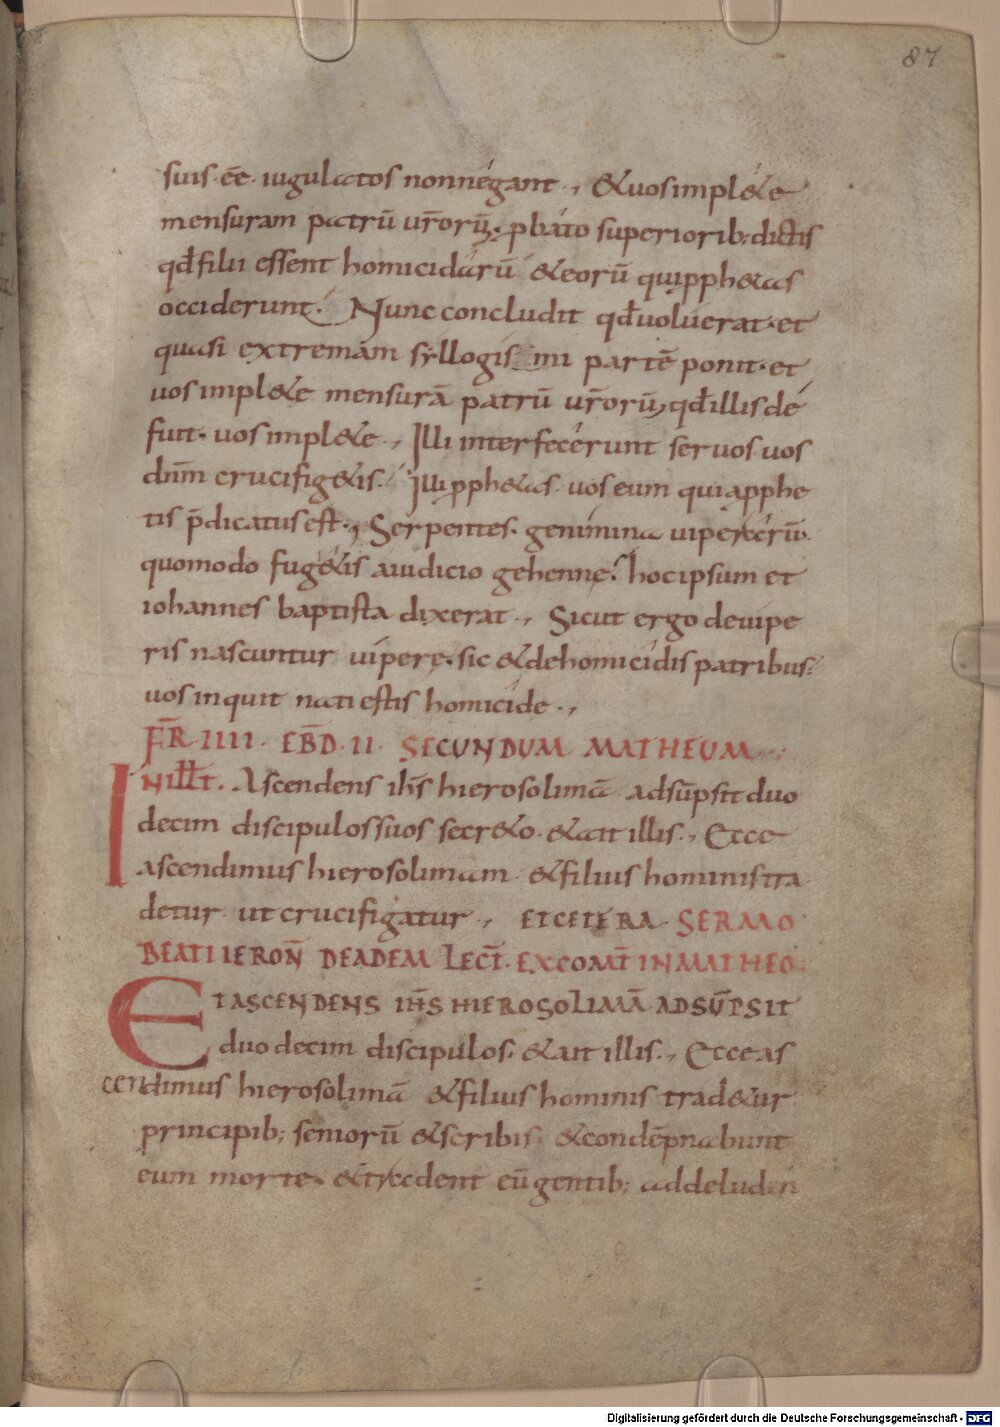 87
suis. eē. iugulatos nonnegant ., &uosimpl&e
mensuram patrū ur̄orū; pbato superiorib; dictis
qđfilii essent homicidarū &eorū quipph&as
occiderunt. Nunc concludit qđuoluerat. et
quasi extremam syllogismi partē ponit. et
uosimpl&e mensurā patrū ur̄orū, qđillisde
fuit. uosimpl&e ., Illi interfecerunt seruos. uos
dn̄m crucifig&is. Illi pph&as. uos eum qui apphe
tis p̄dicatus est ., Serpentes. genimina uiperarū.
quomodo fug&is aiudicio gehennę? hoc ipsum et
iohannes baptista dixerat ., Sicut ergo deuipe
ris nascuntur uiperę. sic &dehomicidis patribus.
uos inquit nati estis homicide .,
FR̄. IIII. EB̄D. II. SECUNDUM MATHEUM
INill̄t. Ascendens ih̄s hierosolimā adsūpsit duo
decim discipulos suos secr&o. &ait illis ., Ecce
ascendimus hierosolimam &filius hominis tra
detur ut crucifigatur ., ETCETERA. SERMO
BEATI IERON̄ DEADEM LECT̄. EXCOMT̄ INMATHEO.
ET ASCENDENS IH̄S HIEROSOLIMĀ ADSŪPSIT
duodecim discipulos. &ait illis ., Ecce as
cendimus hierosolimā &filius hominis trad&ur
principib; seniorū &scribis. &condēpnabunt
eum morte. &tradent eū gentib; addeluden
Digitalisierung gefördert durch die Deutsche Forschungsgemeinschaft - DFG